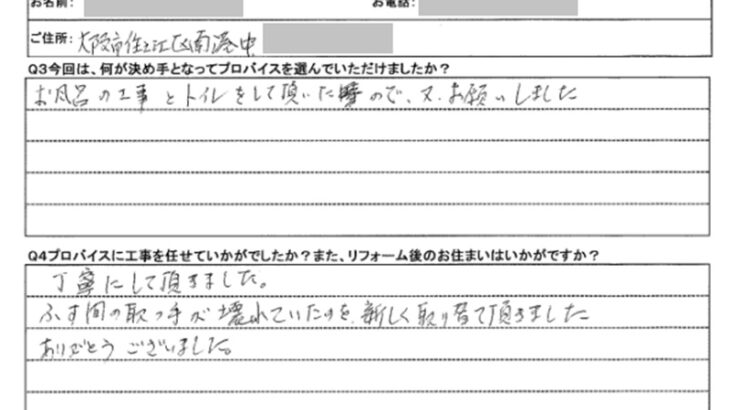 お名前： お電話：
ご住所： 大阪市住之江区南港中
Q3今回は、何が決め手となってプロバイスを選んでいただけましたか？
お風呂の工事とトイレをして頂いたので、又、お願いしました
Q4プロバイスに工事を任せていかがでしたか？また、リフォーム後のお住まいはいかがですか？
丁寧にして頂きました。
ふす間の取っ手が壊れていたのを、新しく取り替て頂きました
ありがとうございました。